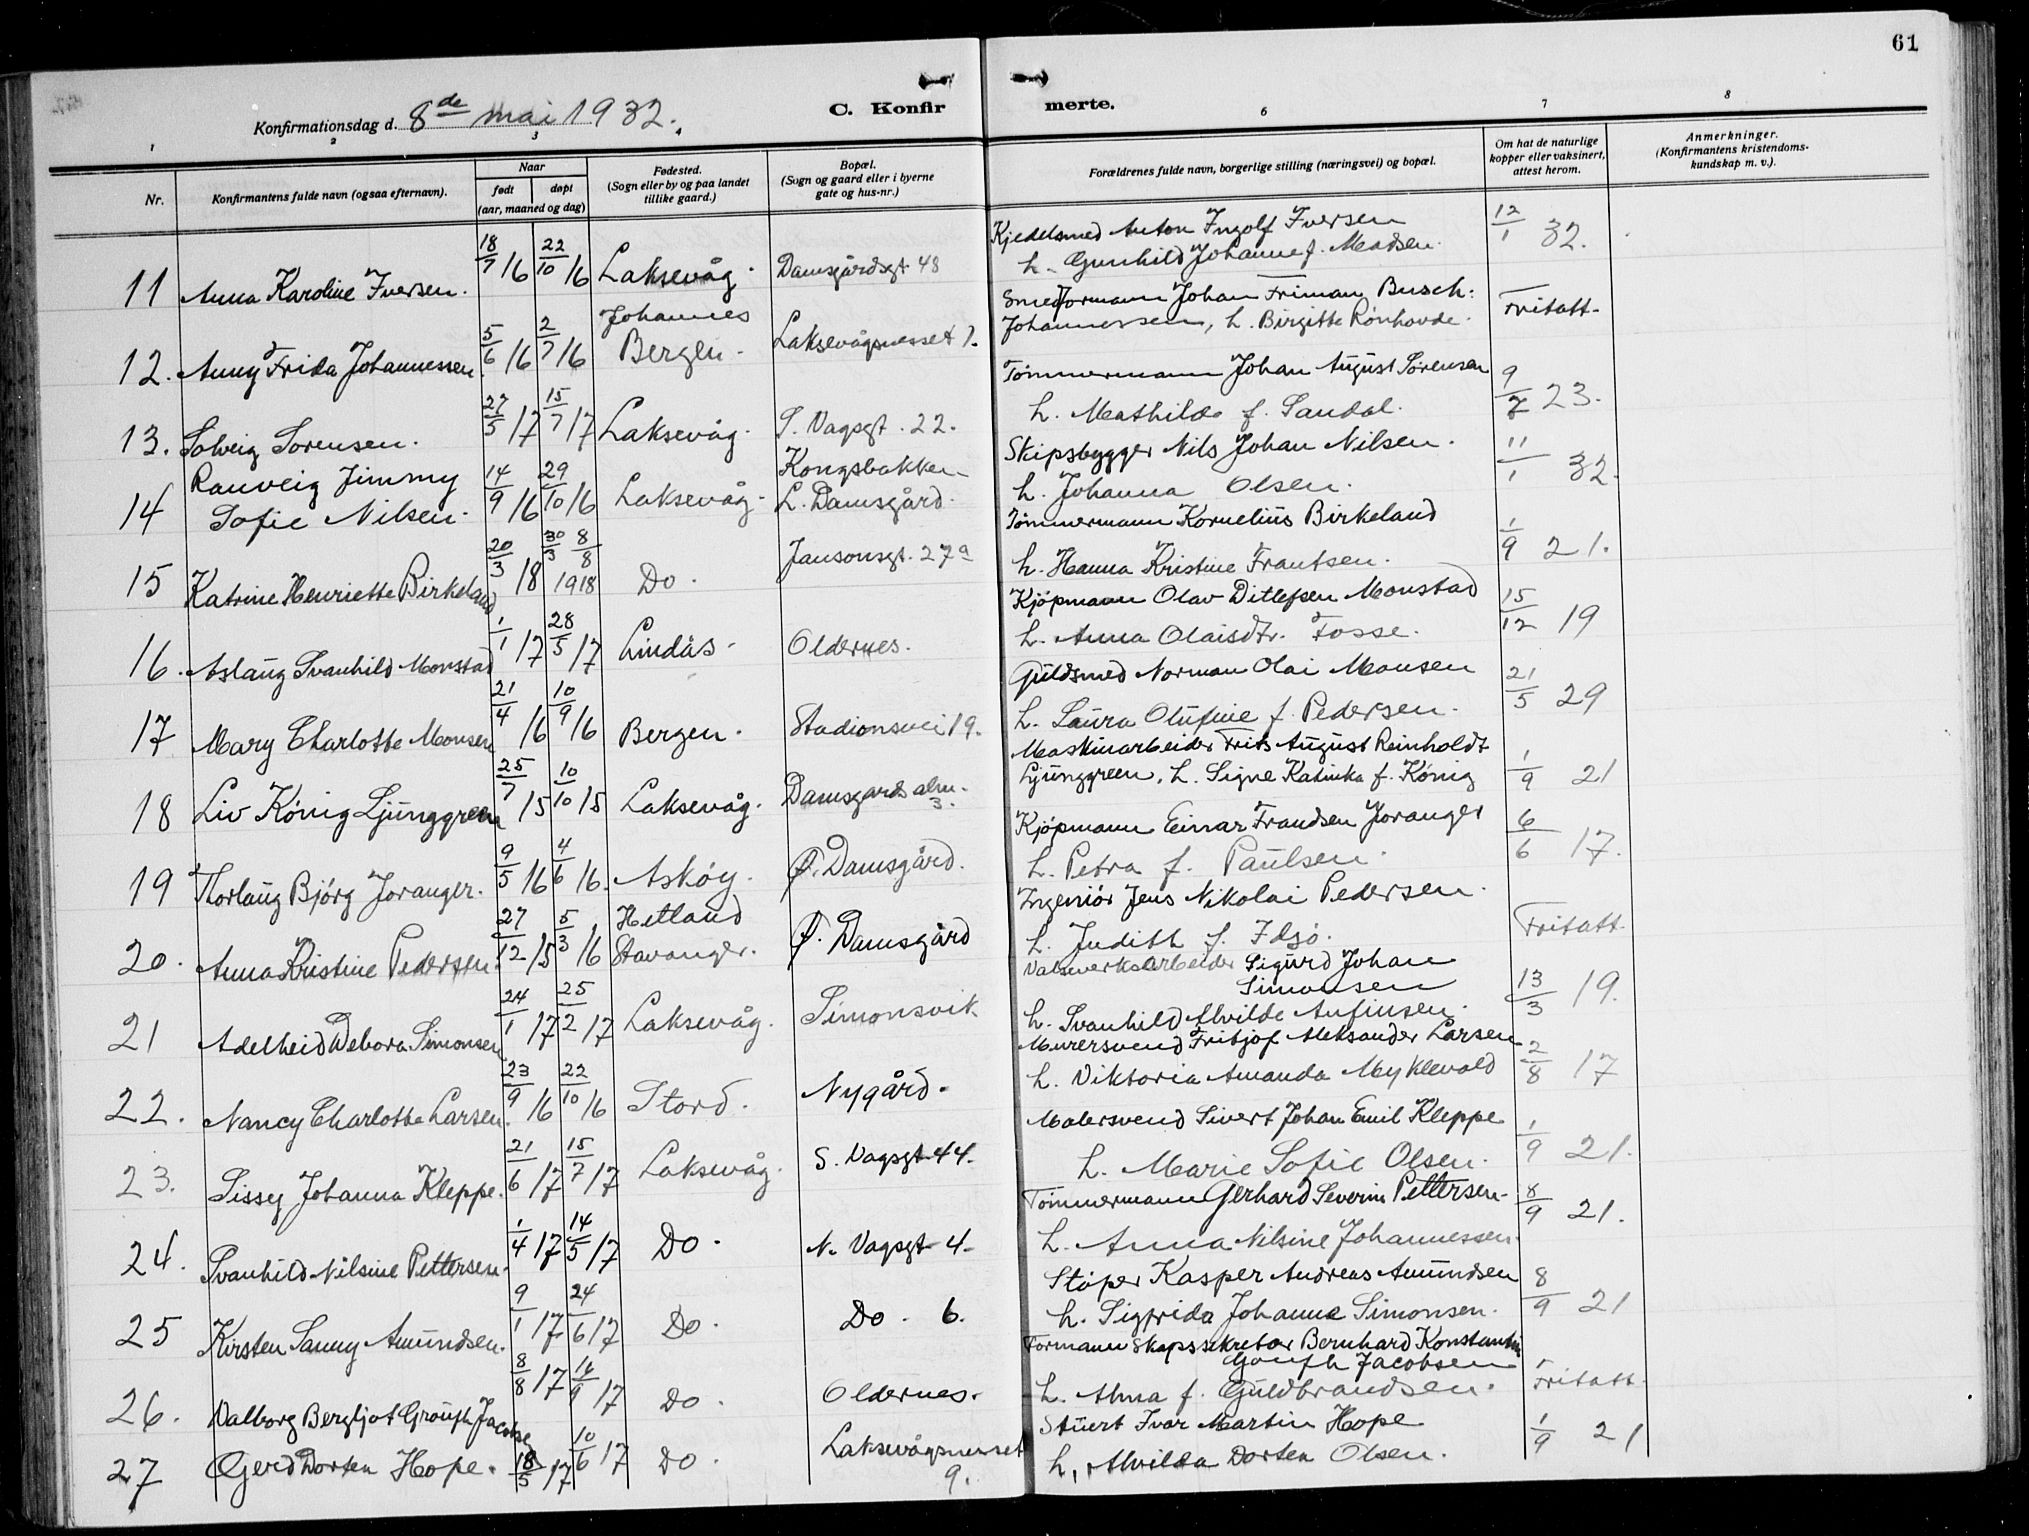 61
Konfirmationsdag d. 8de mai 1932.
C. Konfir
merte.
1
2
3
6
7
8
Nr.
Konfirmantens fulde navn (ogsaa efternavn).
Naar
født
døpt
(aar, maaned og dag)
Fødested.
(Sogn eller by og paa landet
tillike gaard.)
Bopæl.
(Sogn og gaard eller i byerne
gate og hus-nr.)
Forældrenes fulde navn, borgerlige stilling (næringsvei) og bopæl.
Om hat de naturlige
kopper eller vaksinert,
attest herom.
Anmerkninger.
(Konfirmantens kristendoms-
kundskap m. v.).
11 Anna Karoline Iversen. 18/7 16 22/10 16 Laksevåg. Damsgårdsgt 48
Kjedelsmed Anton Ingolf Iversen
h. Gunhild Johanne f. Madsen. 12/1 32.
12. Anny Frida Johannessen 5/6 16 2/7 16 Johannes
Bergen. Laksevågnesset 7.
Smedformann Johan Friman Busch:
Johannessen, h. Birgitte Rønhovde. Fritatt.
13. Solveig Sørensen. 27/5 17 15/7 17 Laksevåg. S. Vagsgt. 22.
Tømmermann Johan August Sørensen
h. Mathilde f. Sandal. 9/7 23.
14 Ranveig Jimmy
Sofie Nilsen. 14/9 16 29/10 16 Laksevåg. Kongsbakken
L. Damsgård.
Skipsbygger Nils Johan Nilsen.
h. Johanna Olsen. 11/1 32.
15 Katrine Henriette Birkeland 20/3 18 30/3 8/8 1918 Do. Jansonsgt. 27a
Tømmermann Kornelius Birkeland
h. Hanna Kristine Frantsen. 1/9 21.
16. Aslaug Svanhild Monstad 1/1 17 28/5 17 Lindås. Oldernes.
Kjøpmann Olav Ditlefsen Monstad
h. Anna Olaisdtr. Fosse. 15/12 19
17 Mary Charlotte Monsen 21/4 16 10/9 16 Bergen. Stadionsvei 19.
Guldsmed Norman Olai Monsen
h. Laura Olufine f. Pedersen. 21/5 29
18 Liv König Ljunggreen 25/7 15 10/10 15 Laksevåg. Damsgards alm.
3.
Maskinarbeider Frits August Reinholdt
Ljunggreen, h. Signe Katinka f. König 1/9 21
19 Thorlaug Bjørg Joranger. 9/5 16 4/6 16. Askøy. Ø. Damsgård.
Kjøpmann Einar Frandsen Joranger
h. Petra f. Paulsen. 6/6 17.
20. Anna Kristine Pedersen. 27/12 15 5/3 16 Hetland
Stavanger. Ø. Damsgård
Ingeniør Jens Nikolai Pedersen.
h. Judith f. Idsjø. Fritatt.
21 Adelheid Debora Simonsen 24/1 17 25/2 17 Laksevåg. Simonsvik
Valsverksarbeider Sigurd Johan
Simonsen
h. Svanhild Alvilde Anfinsen. 13/3 19.
22. Nancy Charlotte Larsen. 23/9 16 22/10 16 Stord. Nygård.
Murersvend Fritjof Aleksander Larsen
h. Viktoria Amanda Myklevold 2/8 17
23. Sissy Johanna Kleppe. 21/6 17 15/7 17 Laksevåg. S. Vagsgt 44.
Malersvend Sivert Johan Emil Kleppe
h. Marie Sofie Olsen. 1/9 21.
24. Svanhild Nilsine Pettersen. 1/4 17 14/5 17 Do. N. Vagsgt 4.
Tømmermann Gerhard Severin Pettersen.
h. Anna Nilsine Johannessen. 8/9 21.
25 Kirsten Sanny Amundsen. 9/1 17 24/6 17 Do. Do. 6.
Støper Kasper Andreas Amundsen
h. Sigfrida Johanne Simonsen. 8/9 21
26. Valborg Bergljot Grouph Jacobsen 8/8 17 16/9 17 Do. Oldernes.
Formannskapssekretær Bernhard Konstantin
Jacobsen
h. Alma f. Guldbrandsen. Fritatt.
27 Gerd Dorten Hope. 18/5 17 10/6 17 Do. Laksevågnesset
9.
Stuert Ivar Martin Hope
h. Alvilda Dorten Olsen. 1/9 21